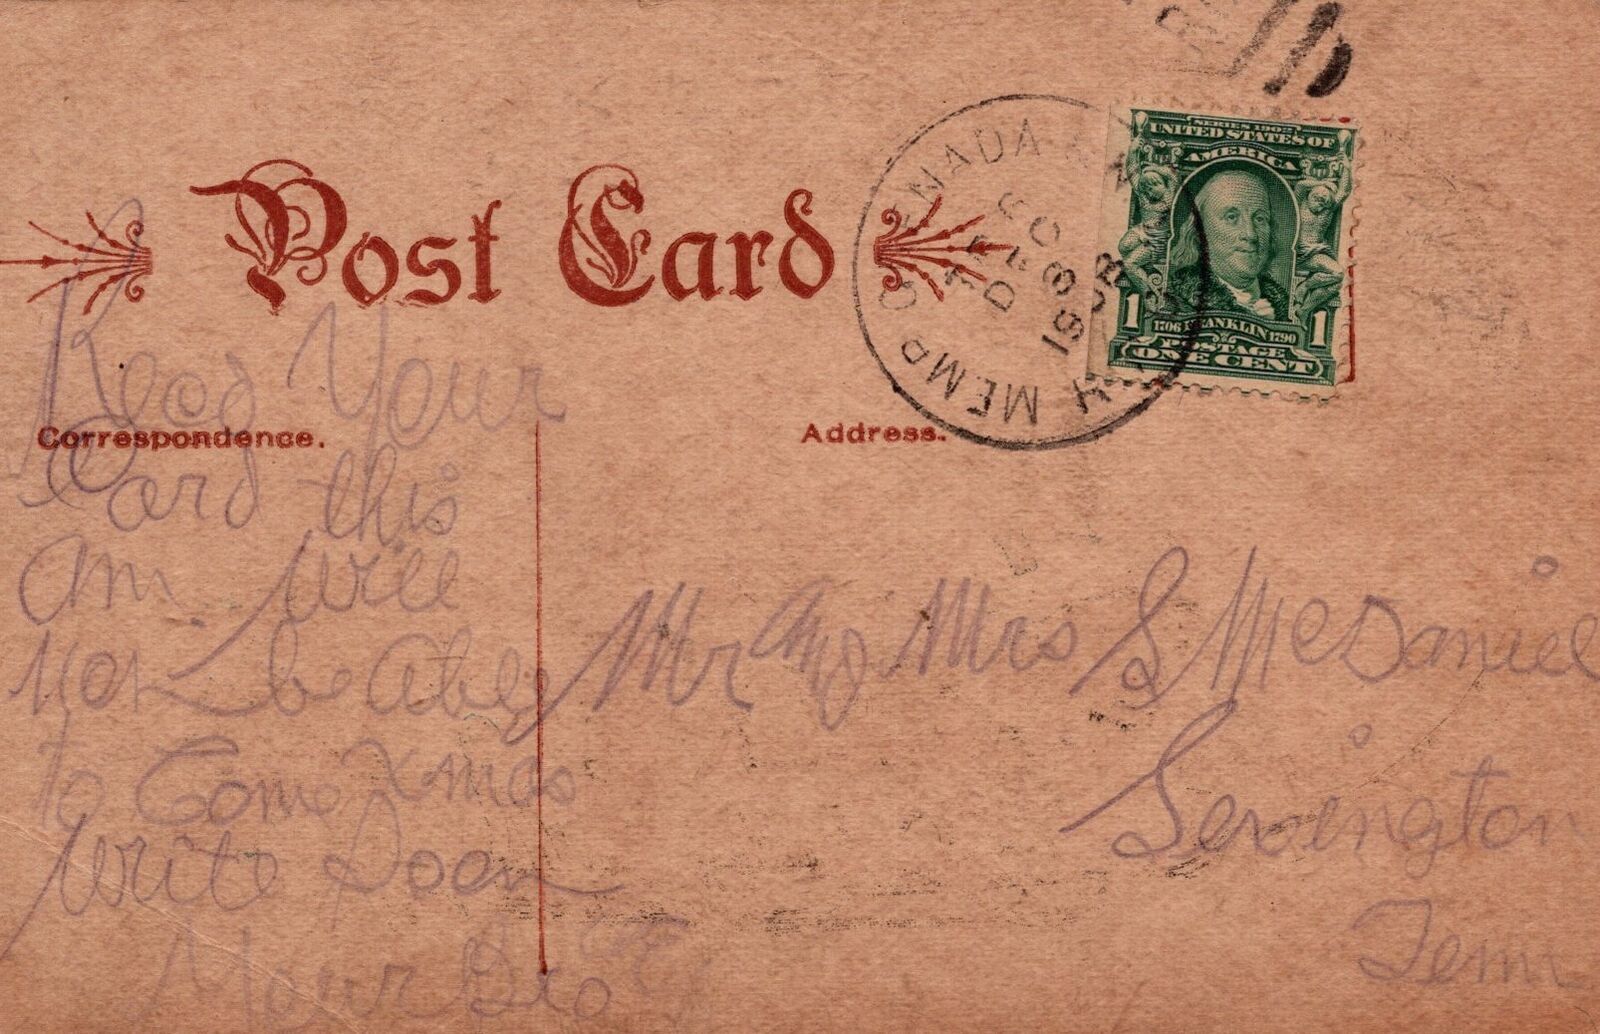 Post Card
SERIES 1902
UNITED STATES OF
AMERICA
1706 FRANKLIN 1790
POSTAGE
ONE CENT
1 1
NADA
MEMP
DEC
190
Correspondence.
Address.
Your
Card this
am. Will
Not be Able
to Come Xmas
Write Soon
Your Bro
Mr And Mrs S McDaniel
Lexington
Tenn